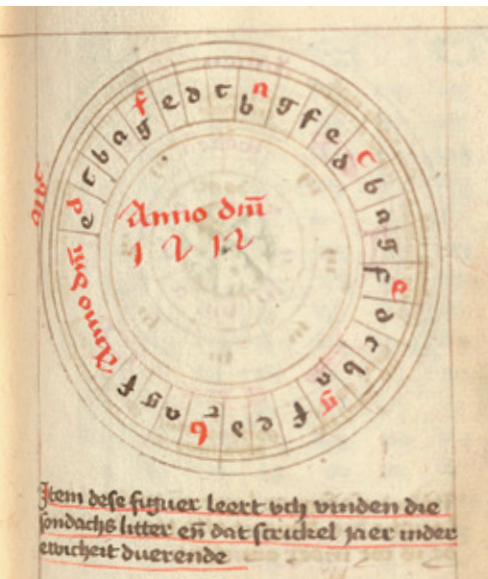 Anno dm̄ d e c b a g f e d c b a g f e d c b a g f e d c b a g f e d c b a g f
Anno dm̄
1 2 12
Item dese figuer leert vch vinden die
sondachs litter en̄ dat scrickel jaer inder
ewicheit duerende